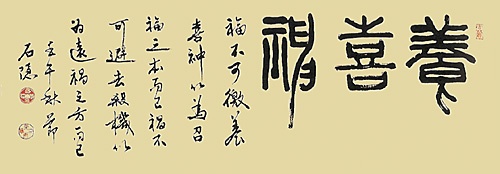 養喜神
福不可徼養
喜神以為召
福之本而已禍不
可避去殺機以
為遠禍之方而已
壬午秋節